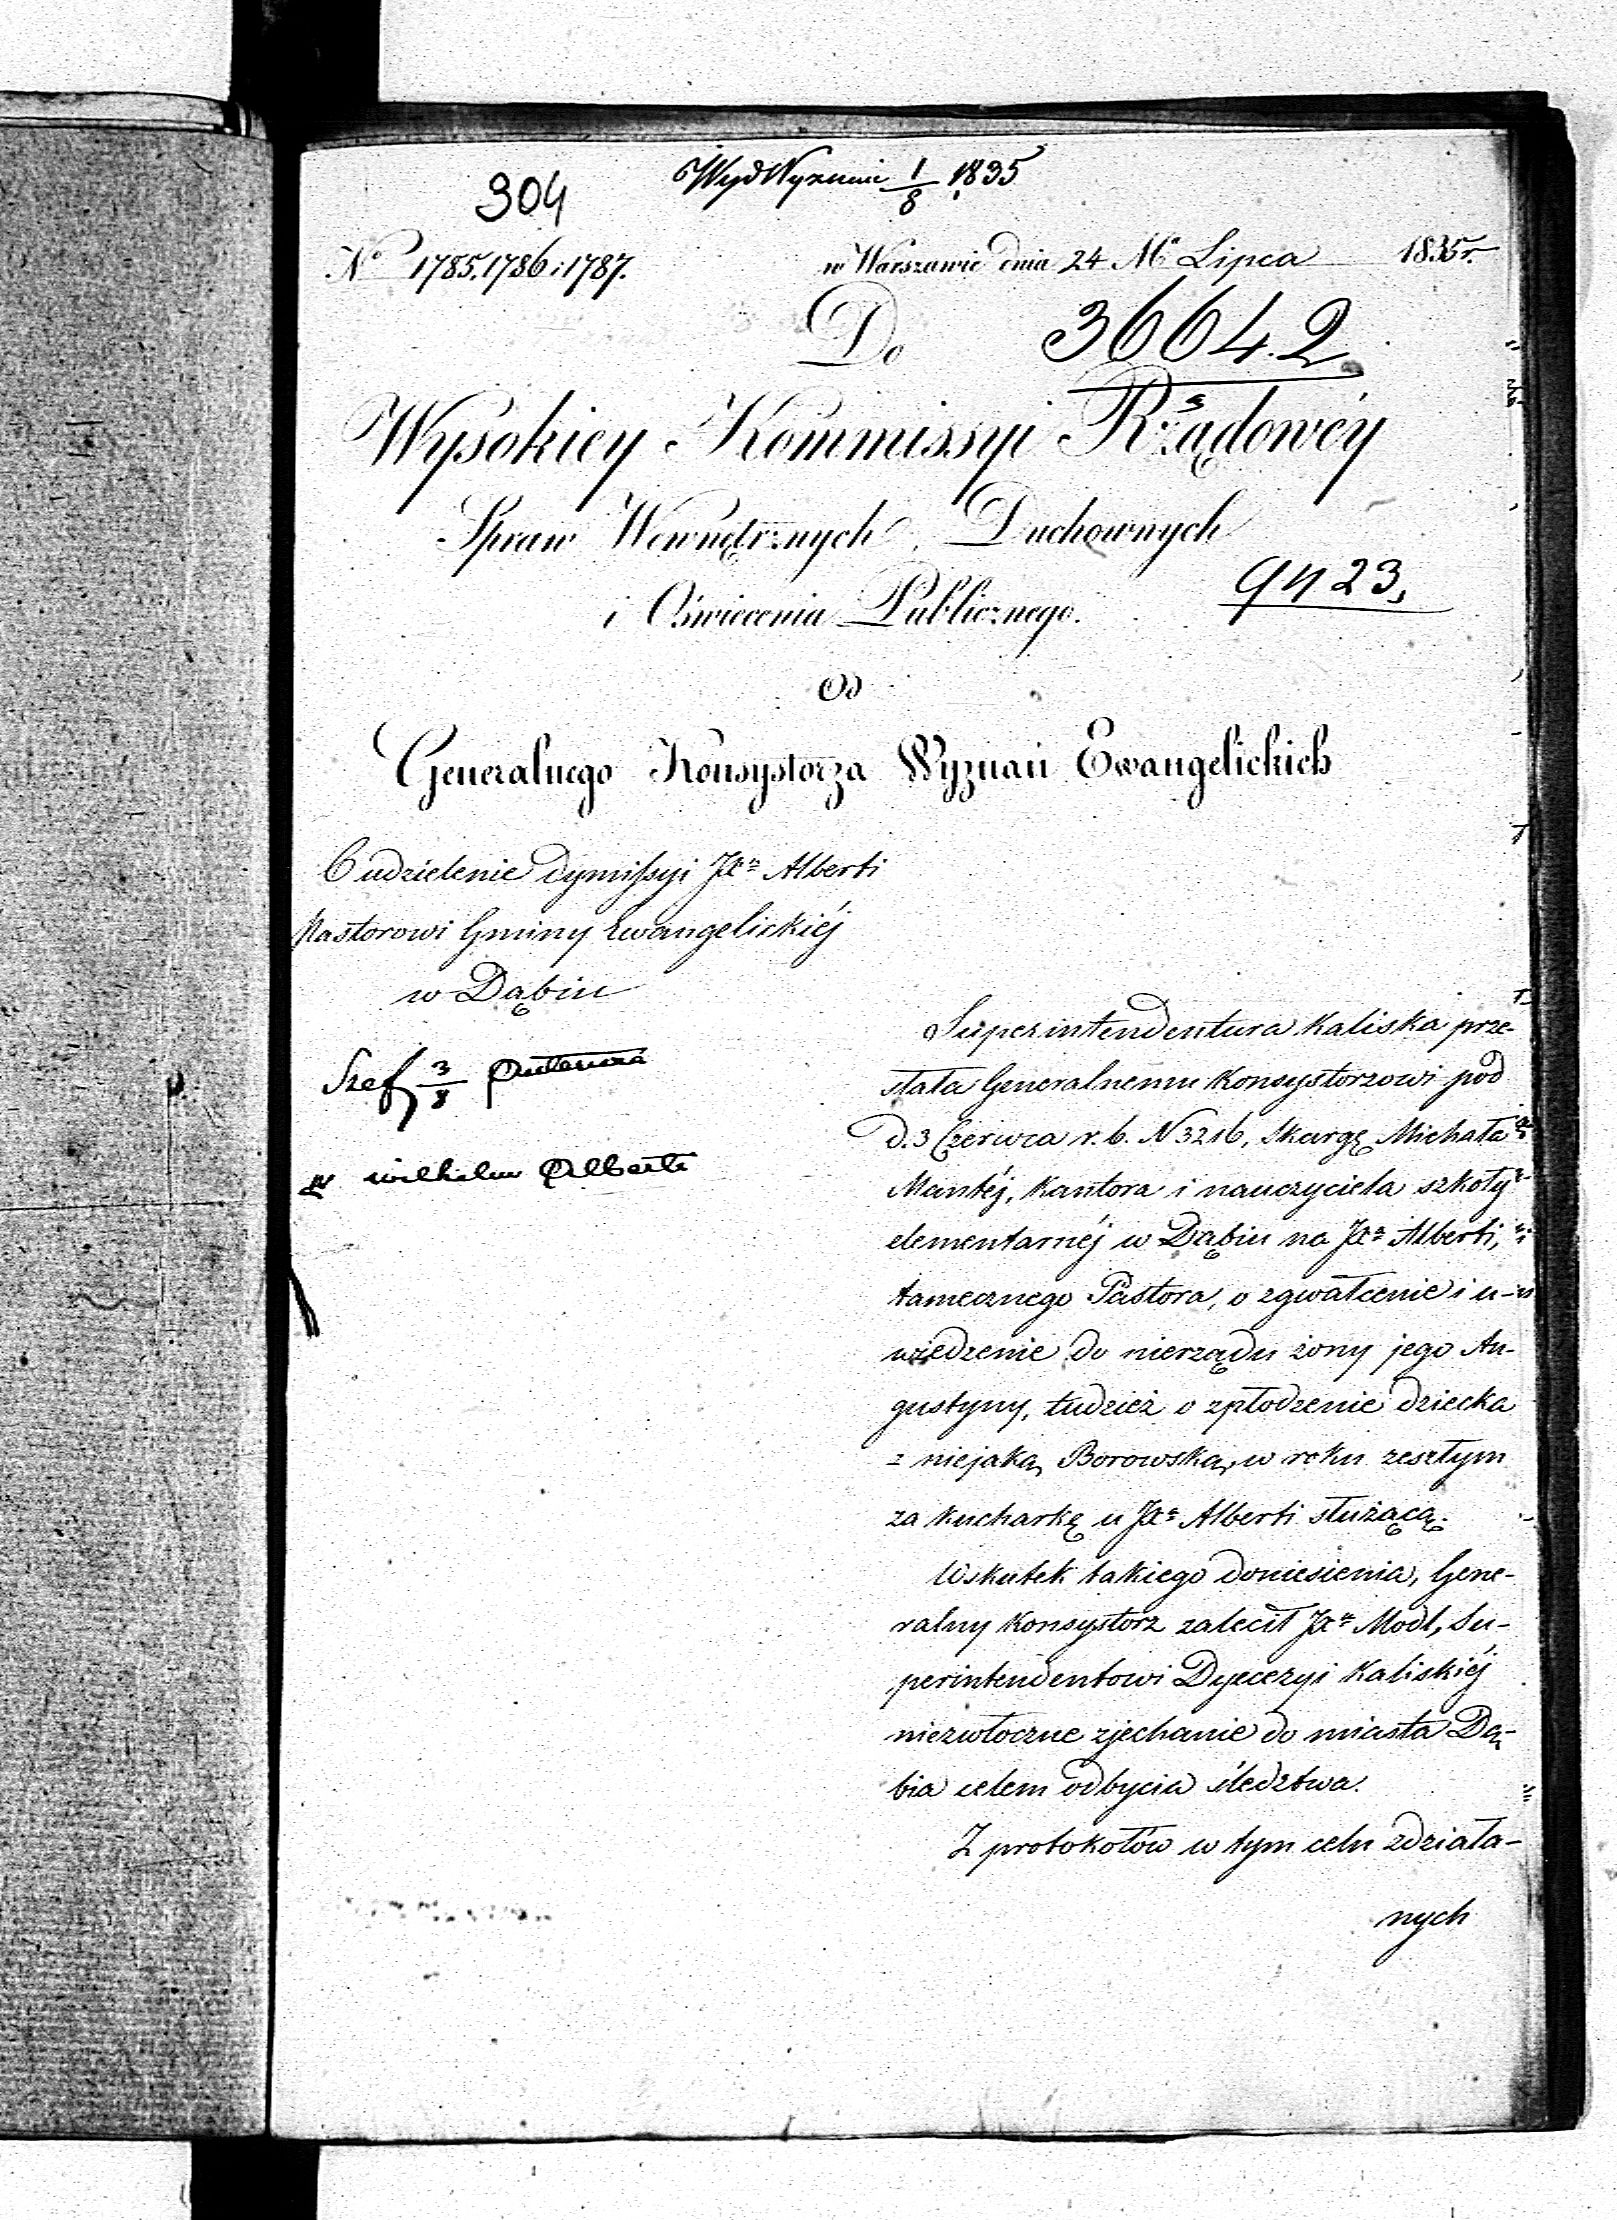 304
Wyd Wyznań 1/8 1835
No 1785, 1786 i 1787.
w Warszawie dnia 24 Mca Lipca 1835 r.
Do
36642
Wysokiey Kommissyi Rządowéy
Spraw Wewnętrznych, Duchownych
i Oświecenia Publicznego.
Od
Generalnego Konsystorza Wyznań Ewangelickich
O udzielenie dymissyi JXu Alberti
Pastorowi Gminy Ewangelickiéj
w Dąbiu
Szef 3/8
wilhelm Alberti
Superintendentura Kaliska prze-
słała Generalnemu Konsystorzowi pod
d. 3 Czerwca r. b. N 3216, skargę Michała
Mantéj, Kantora i nauczyciela szkoły
elementarnéj w Dąbiu na JXa Alberti,
tamecznego Pastora, o zgwałcenie i u-
wiedzenie do nierządu żony jego Au-
gustyny, tudzież o zpłodzenie dziecka
z niejaką Borowską, w roku zeszłym
za kucharkę u JXa Alberti służącą.
Wskutek takiego doniesienia, Gene-
ralny Konsystorz zalecił JXu Modl, Su-
perintendentowi Dyecezyi Kaliskiéj
niezwłoczne zjechanie do miasta Dą-
bia celem odbycia śledztwa.
Z protokołów w tym celu zdziała-
nych